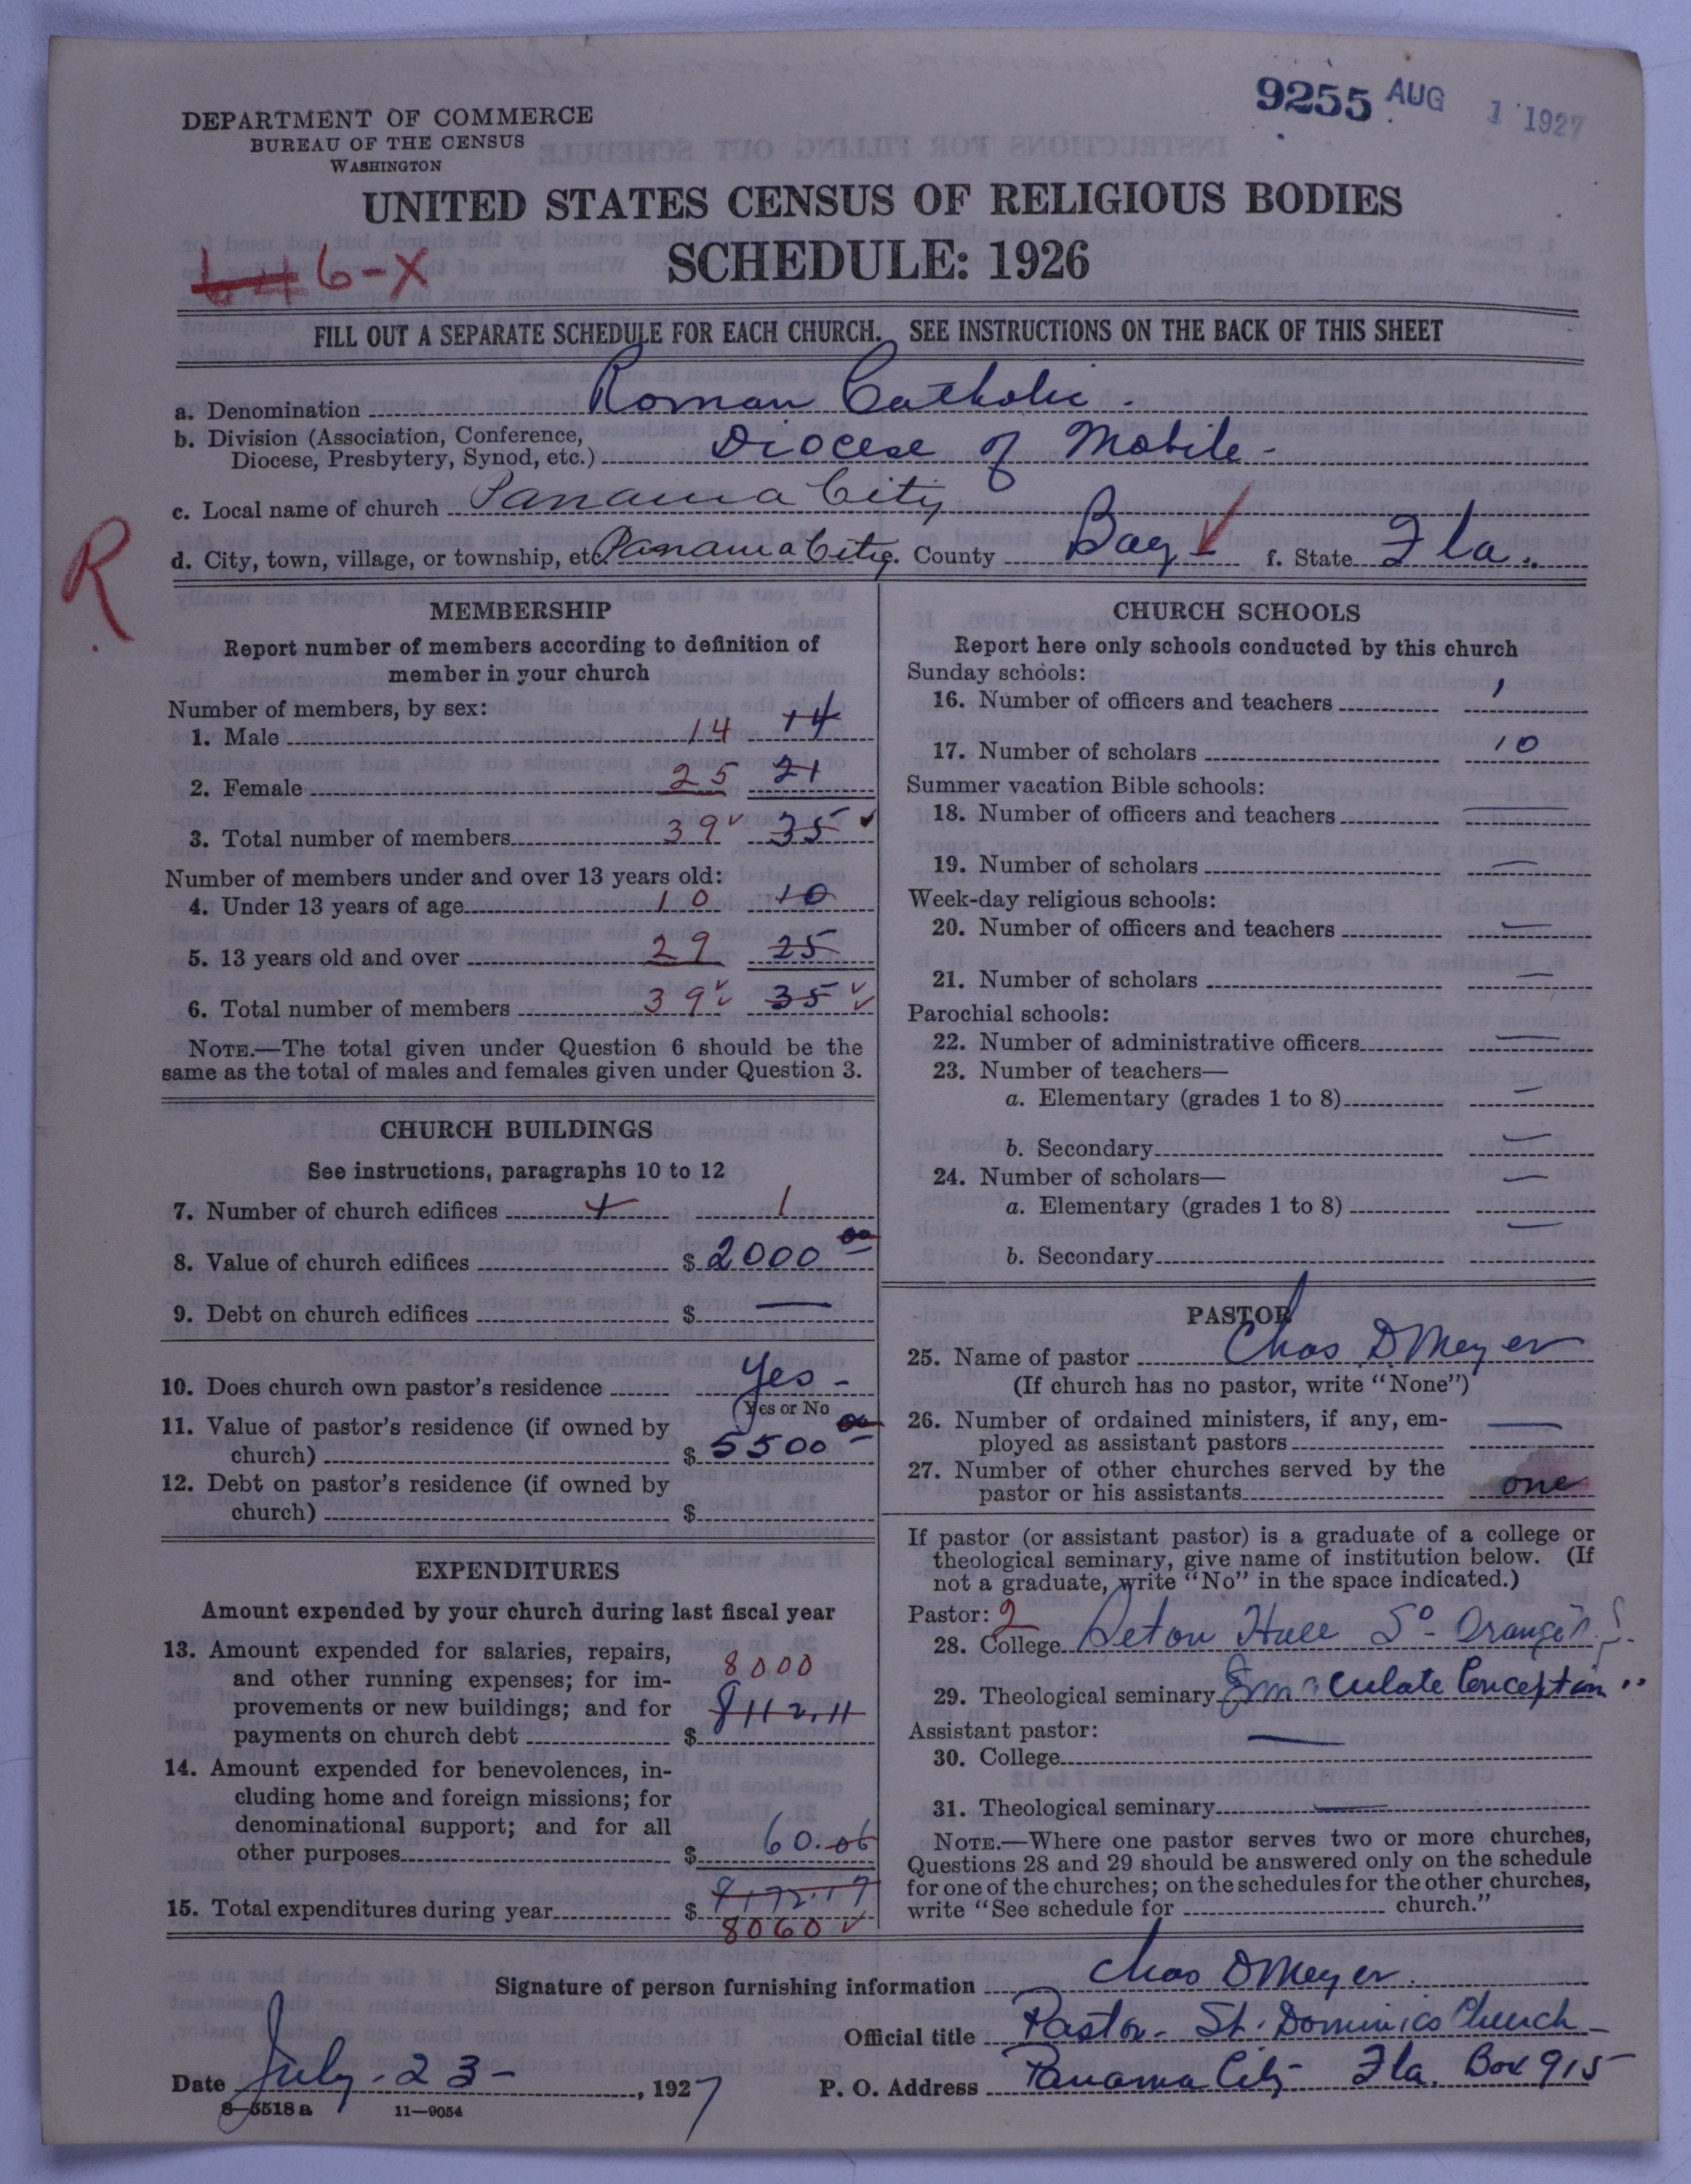 9255 AUG 1 1927
DEPARTMENT OF COMMERCE
BUREAU OF THE CENSUS
WASHINGTON
UNITED STATES CENSUS OF RELIGIOUS BODIES
SCHEDULE: 1926
6-X
FILL OUT A SEPARATE SCHEDULE FOR EACH CHURCH. SEE INSTRUCTIONS ON THE BACK OF THIS SHEET
a. Denomination Roman Catholic.
b. Division (Association, Conference,
Diocese, Presbytery, Synod, etc.) Diocese of Mobile-
c. Local name of church Panama City
R
d. City, town, village, or township, etc. Panama City. County Bay f. State Fla.
MEMBERSHIP
Report number of members according to definition of
member in your church
Number of members, by sex:
1. Male 14 14
2. Female 25 21
3. Total number of members 39 35
Number of members under and over 13 years old:
4. Under 13 years of age 10 10
5. 13 years old and over 29 25
6. Total number of members 39 35
NOTE.—The total given under Question 6 should be the
same as the total of males and females given under Question 3.
CHURCH BUILDINGS
See instructions, paragraphs 10 to 12
7. Number of church edifices 1
8. Value of church edifices $ 2000 00
9. Debt on church edifices $ —
10. Does church own pastor's residence Yes -
(Yes or No
11. Value of pastor's residence (if owned by
church) $ 5500 00
12. Debt on pastor's residence (if owned by
church) $
EXPENDITURES
Amount expended by your church during last fiscal year
13. Amount expended for salaries, repairs,
and other running expenses; for im-
provements or new buildings; and for
payments on church debt $ 8000
8112.11
14. Amount expended for benevolences, in-
cluding home and foreign missions; for
denominational support; and for all
other purposes $ 60.06
15. Total expenditures during year $ 8172.17
8060
CHURCH SCHOOLS
Report here only schools conducted by this church
Sunday schools:
16. Number of officers and teachers 1
17. Number of scholars 10
Summer vacation Bible schools:
18. Number of officers and teachers —
19. Number of scholars —
Week-day religious schools:
20. Number of officers and teachers —
21. Number of scholars —
Parochial schools:
22. Number of administrative officers —
23. Number of teachers—
a. Elementary (grades 1 to 8) —
b. Secondary —
24. Number of scholars— —
a. Elementary (grades 1 to 8) —
b. Secondary
PASTOR
25. Name of pastor Chas D Meyer
(If church has no pastor, write "None")
26. Number of ordained ministers, if any, em-
ployed as assistant pastors —
27. Number of other churches served by the
pastor or his assistants one
If pastor (or assistant pastor) is a graduate of a college or
theological seminary, give name of institution below. (If
not a graduate, write "No" in the space indicated.)
Pastor: 2
28. College Seton Hall So- Orange N.J.
29. Theological seminary Immaculate Conception "
Assistant pastor:
30. College —
31. Theological seminary —
NOTE.—Where one pastor serves two or more churches,
Questions 28 and 29 should be answered only on the schedule
for one of the churches; on the schedules for the other churches,
write "See schedule for church."
Signature of person furnishing information Chas D Meyer.
Official title Pastor- St. Dominics Church-
Date July-23-, 1927 P. O. Address Panama City Fla. Box 915
8—5518 a 11—9054